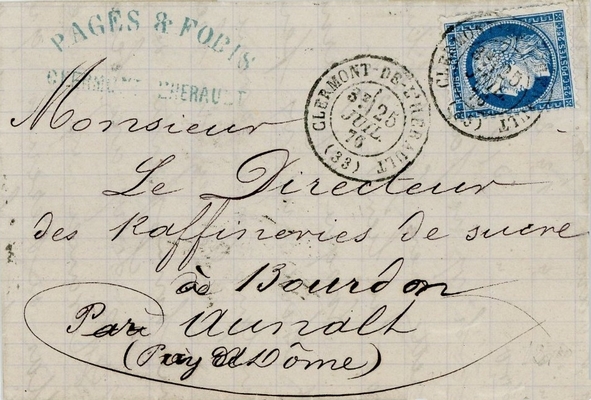 PAGÈS & FOBIS
CLERMONT L'HERAULT
CLERMONT-DE-L'HÉRAULT
8E/
25
JUIL.
76
(33)
REPUB. FRANC.
25 C. POSTES 25 C.
Monsieur
Le Directeur
des Raffineries de sucre
à Bourdon
Par Aunalt
(Puy de Dôme)